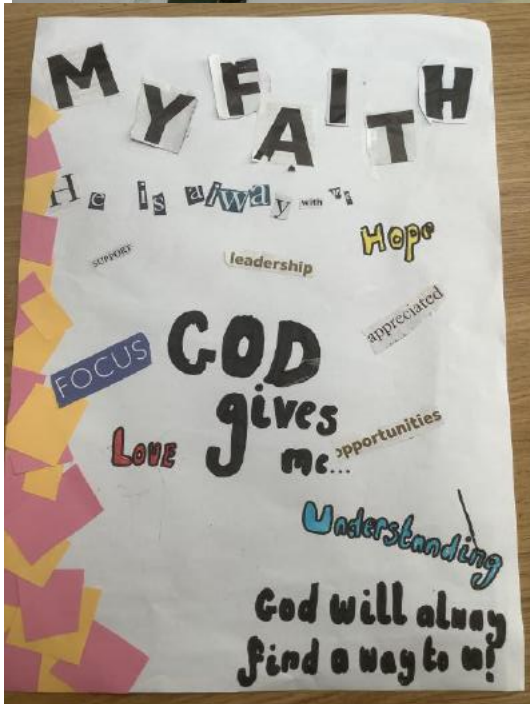 MY FAITH
He is alway with us
Hope
SUPPORT
leadership
appreciated
FOCUS
GOD
gives
me...
LOVE
opportunities
Understanding
God will alway
find a way to us!